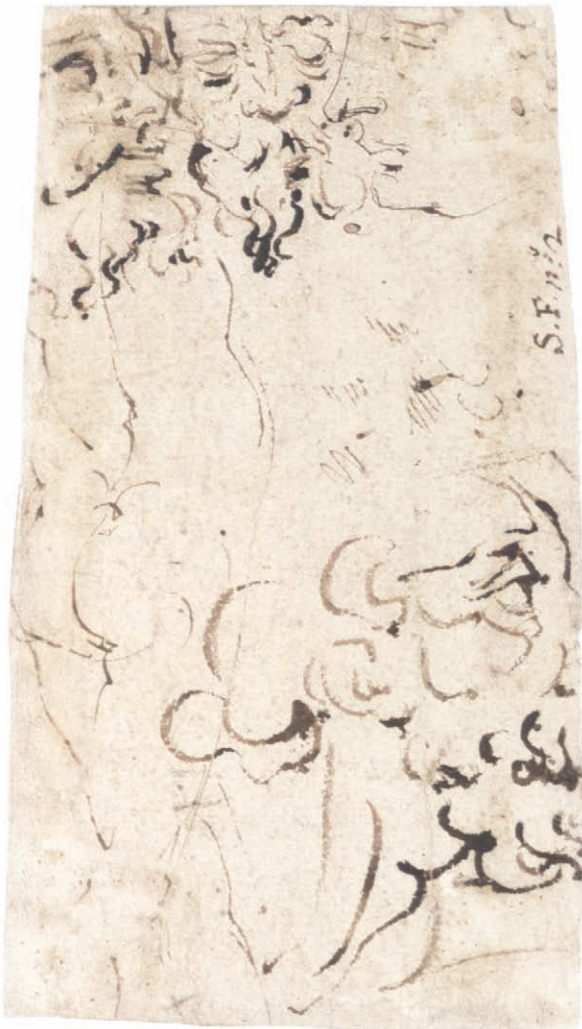 S.F. n:º 2